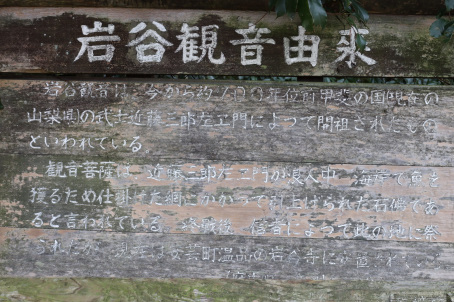 岩谷観音由来
岩谷観音は、今から約 年位前甲斐の国現在の
山梨県の武士近藤二郎左ヱ門によって開祖されたもの
といわれている。
観音菩薩は、近藤二郎左ヱ門が浪人中、海辺で魚を
獲るため仕掛けた網にかかって引上げられた石佛であ
ると言われている。終戦後、信者によって此の地に祭
られたが、現在は安芸町温品の岩谷寺に